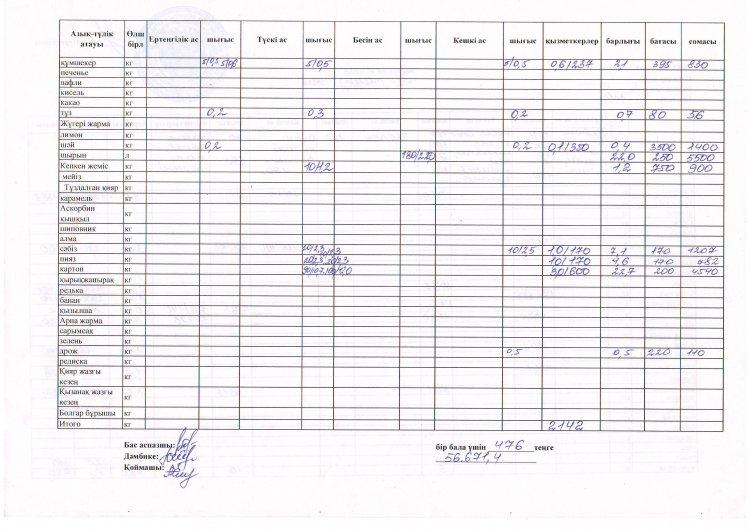 Азық-түлік атауы Өлш бірл Ертеңгілік ас шығыс Түскі ас шығыс Бесін ас шығыс Кешкі ас шығыс қызметкерлер барлығы бағасы сомасы
құмшекер кг 5/0,5 5/0,5 0,6/237 2,1 395 830
печенье кг
вафли кг
кисель кг
какао кг
тұз кг 0,2 0,3 0,2 0,7 80 56
Жүгері жарма кг
лимон кг
шәй кг 0,2 0,2 0,1/350 0,4 3500 1400
шырын л 180/220 22,0 250 5500
Кепкен жеміс кг 10/1,2 1,2 750 900
мейіз кг
Тұздалған қияр кг
карамель кг
Аскорбин қышқыл кг
шиповник кг
алма кг
сәбіз кг 10/2,5 10/170 7,1 170 1207
пияз кг 10/170 4,6 170 782
картоп кг 3,0/600 22,7 200 4540
қырыққабырақ кг
редька кг
банан кг
қызылша кг
Арпа жарма кг
сарымсақ кг
зелень кг
дрож кг 0,5 0,5 220 110
редиска кг
Қияр жазғы кезең кг
Қызанақ жазғы кезең кг
Болгар бұрышы кг
Итого кг 2142
Бас аспазшы:
Дәмбике:
Қоймашы:
бір бала үшін 476 теңге
56.671,4